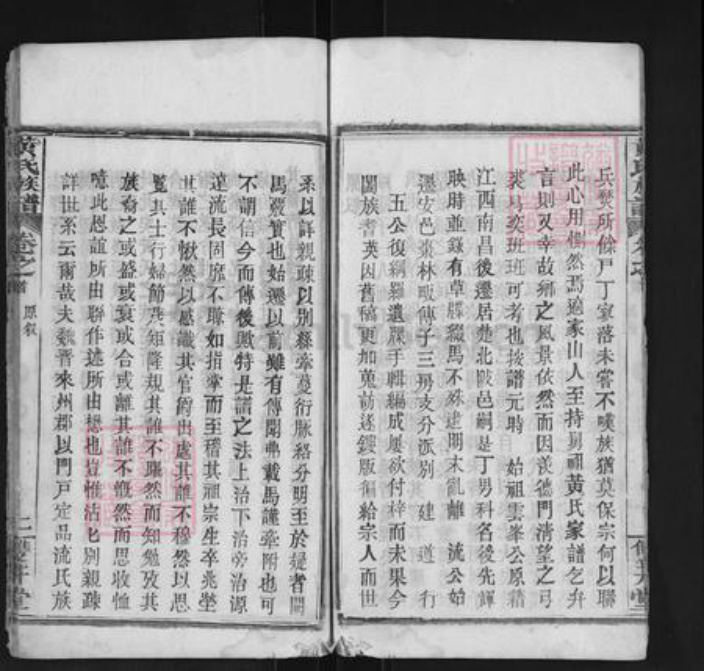 兵燹所餘戶丁寥落未嘗不嘆族猶莫保宗何以聯
此心用惻然焉適家山人至持剔禰黃氏家譜乞弁
言則又幸故鄉之風景依然而因羨德門清望之弓
裘奕奕班班可考也按譜元時 始祖雲峯公原籍
江西南昌後遷居楚北陂邑嗣是丁男科名後先輝
映時並錄有草牒綴焉不殊逮明末亂離 流公始
遷安邑棗林畈傳子三房支分派別 建 道 行
五公復綱羅遺牒手輯編成屢欲付梓而未果今
闔族耆英因舊稿更加蒐訪逐鏤版徧給宗人而世
系以詳親疎以別緜牽蔓衍脈絡分明至於援者闕
焉覈實也始遷以前雖有傳聞弗載焉謹牽附也可
不謂信今而傳後歟特是譜之法上治下治旁治源
遠流長固靡不賺如指掌而至稽其祖宗生卒兆塋
其誰不愀然以感識其官爵出處其誰不穆然以思
覧其士行婦節矩隆規其誰不躍然而知勉及其
族裔之或盛或衰或合或離其誰不慨然而思收恤
噫此恩誼所由聯作述所由懋也豈惟沾沾別親疎
詳世系云爾哉夫魏晋來州郡以門戶定品流氏族
黃氏族譜
卷之首
原叙
二
堂